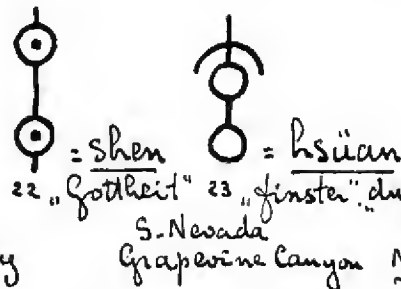 = shen = hsüan
22 „Gottheit" 23 „finster", „du
S. Nevada
y Grapevine Canyon